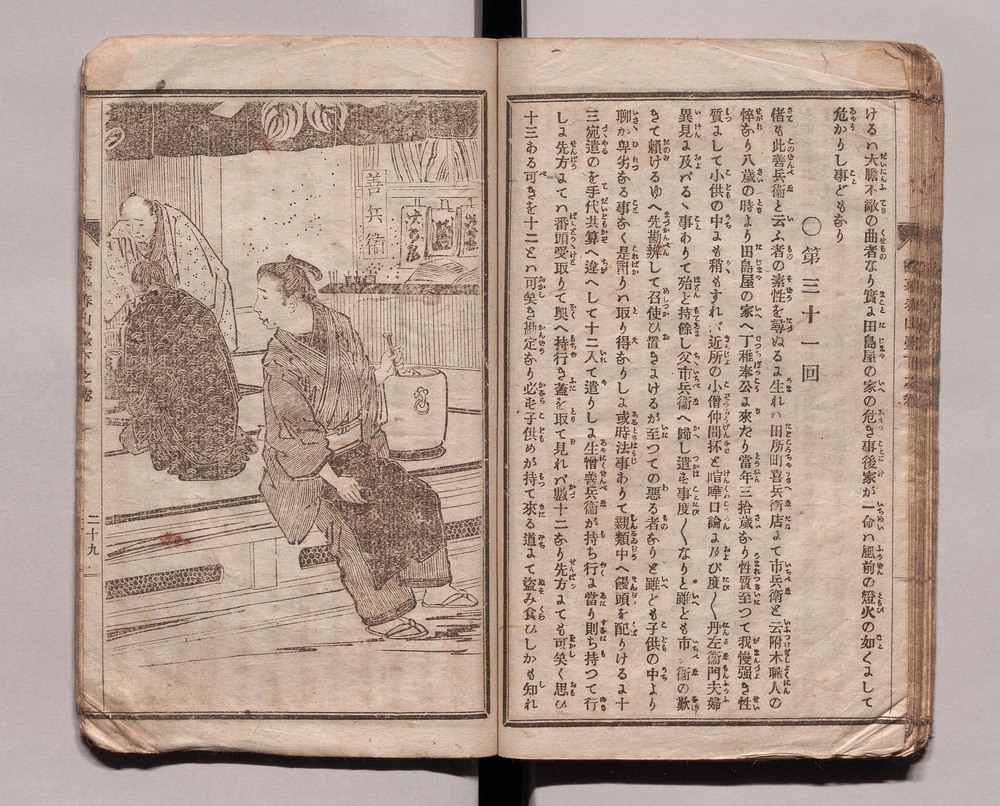 けるハ大膽不敵の曲者なり實よ田島屋の家の危き事後家が一命ハ風前の燈火の如くよして
危かりし事どもなり
〇第三十一回
偖も此善兵衞と云ふ者の素性を尋ぬるよ生れハ田所町喜兵衞店よて市兵衞と云附木職人の
悴なり八歳の時より田島屋の家へ丁稚奉公よ來たり當年三拾歳なり性質至つて我慢強き性
質よして小供の中よも稍もすれバ近所の小僧仲間抔と喧嘩口論よ及び度〱丹左衞門夫婦
異見よ及バるゝ事ありて殆ど持餘し父市兵衞へ歸し遣も事度〱なりと雖ども市兵衞の歎
きて頼けるゆへ先勘辨して召使ひ置きよけるが至つての惡る者なりと雖ども子供の中より
聊か卑劣なる事なく是計りハ取り得なりしよ或時法事ありて親類中へ饅頭を配りけるよ十
三宛遣のを手代共算へ違へして十二入て遣りしよ生憎善兵衞が持ち行よ當り則ち持つて行
しよ先方よてハ番頭受取りて奥へ持行き蓋を取て見れバ數十二なり先方よても可笑く思ひ
十三ある可きを十二とハ可笑き勘定なり必ず子供めが持て來る道よて盜み食ひしかも知れ
善兵衞
二十九